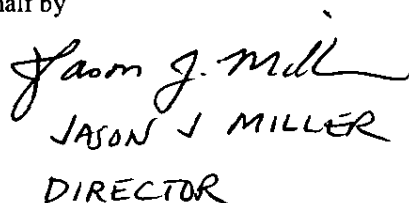 half by
Jason J. Mill
JASON J MILLER
DIRECTOR